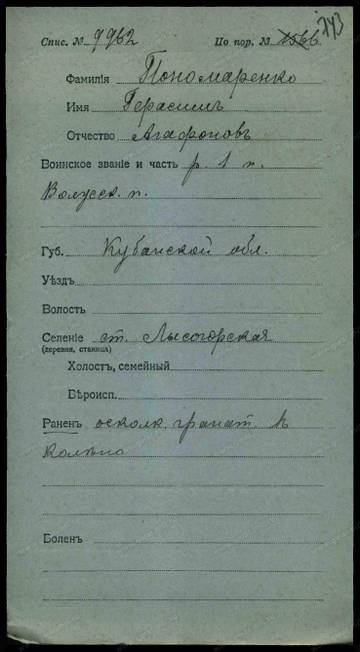 Спис. № 9962 По пор. № 1566 243
Фамилія Пономаренко
Имя Герасимъ
Отчество Агафоновъ
Воинское званіе и часть р. 1 п.
п.
Губ. Кубанской обл.
Уѣздъ
Волость
Селеніе ст. Лысогорская
(деревня, станица)
Холостъ, семейный
Вѣроисп.
Раненъ осколк. гранат. въ
колѣно
Боленъ